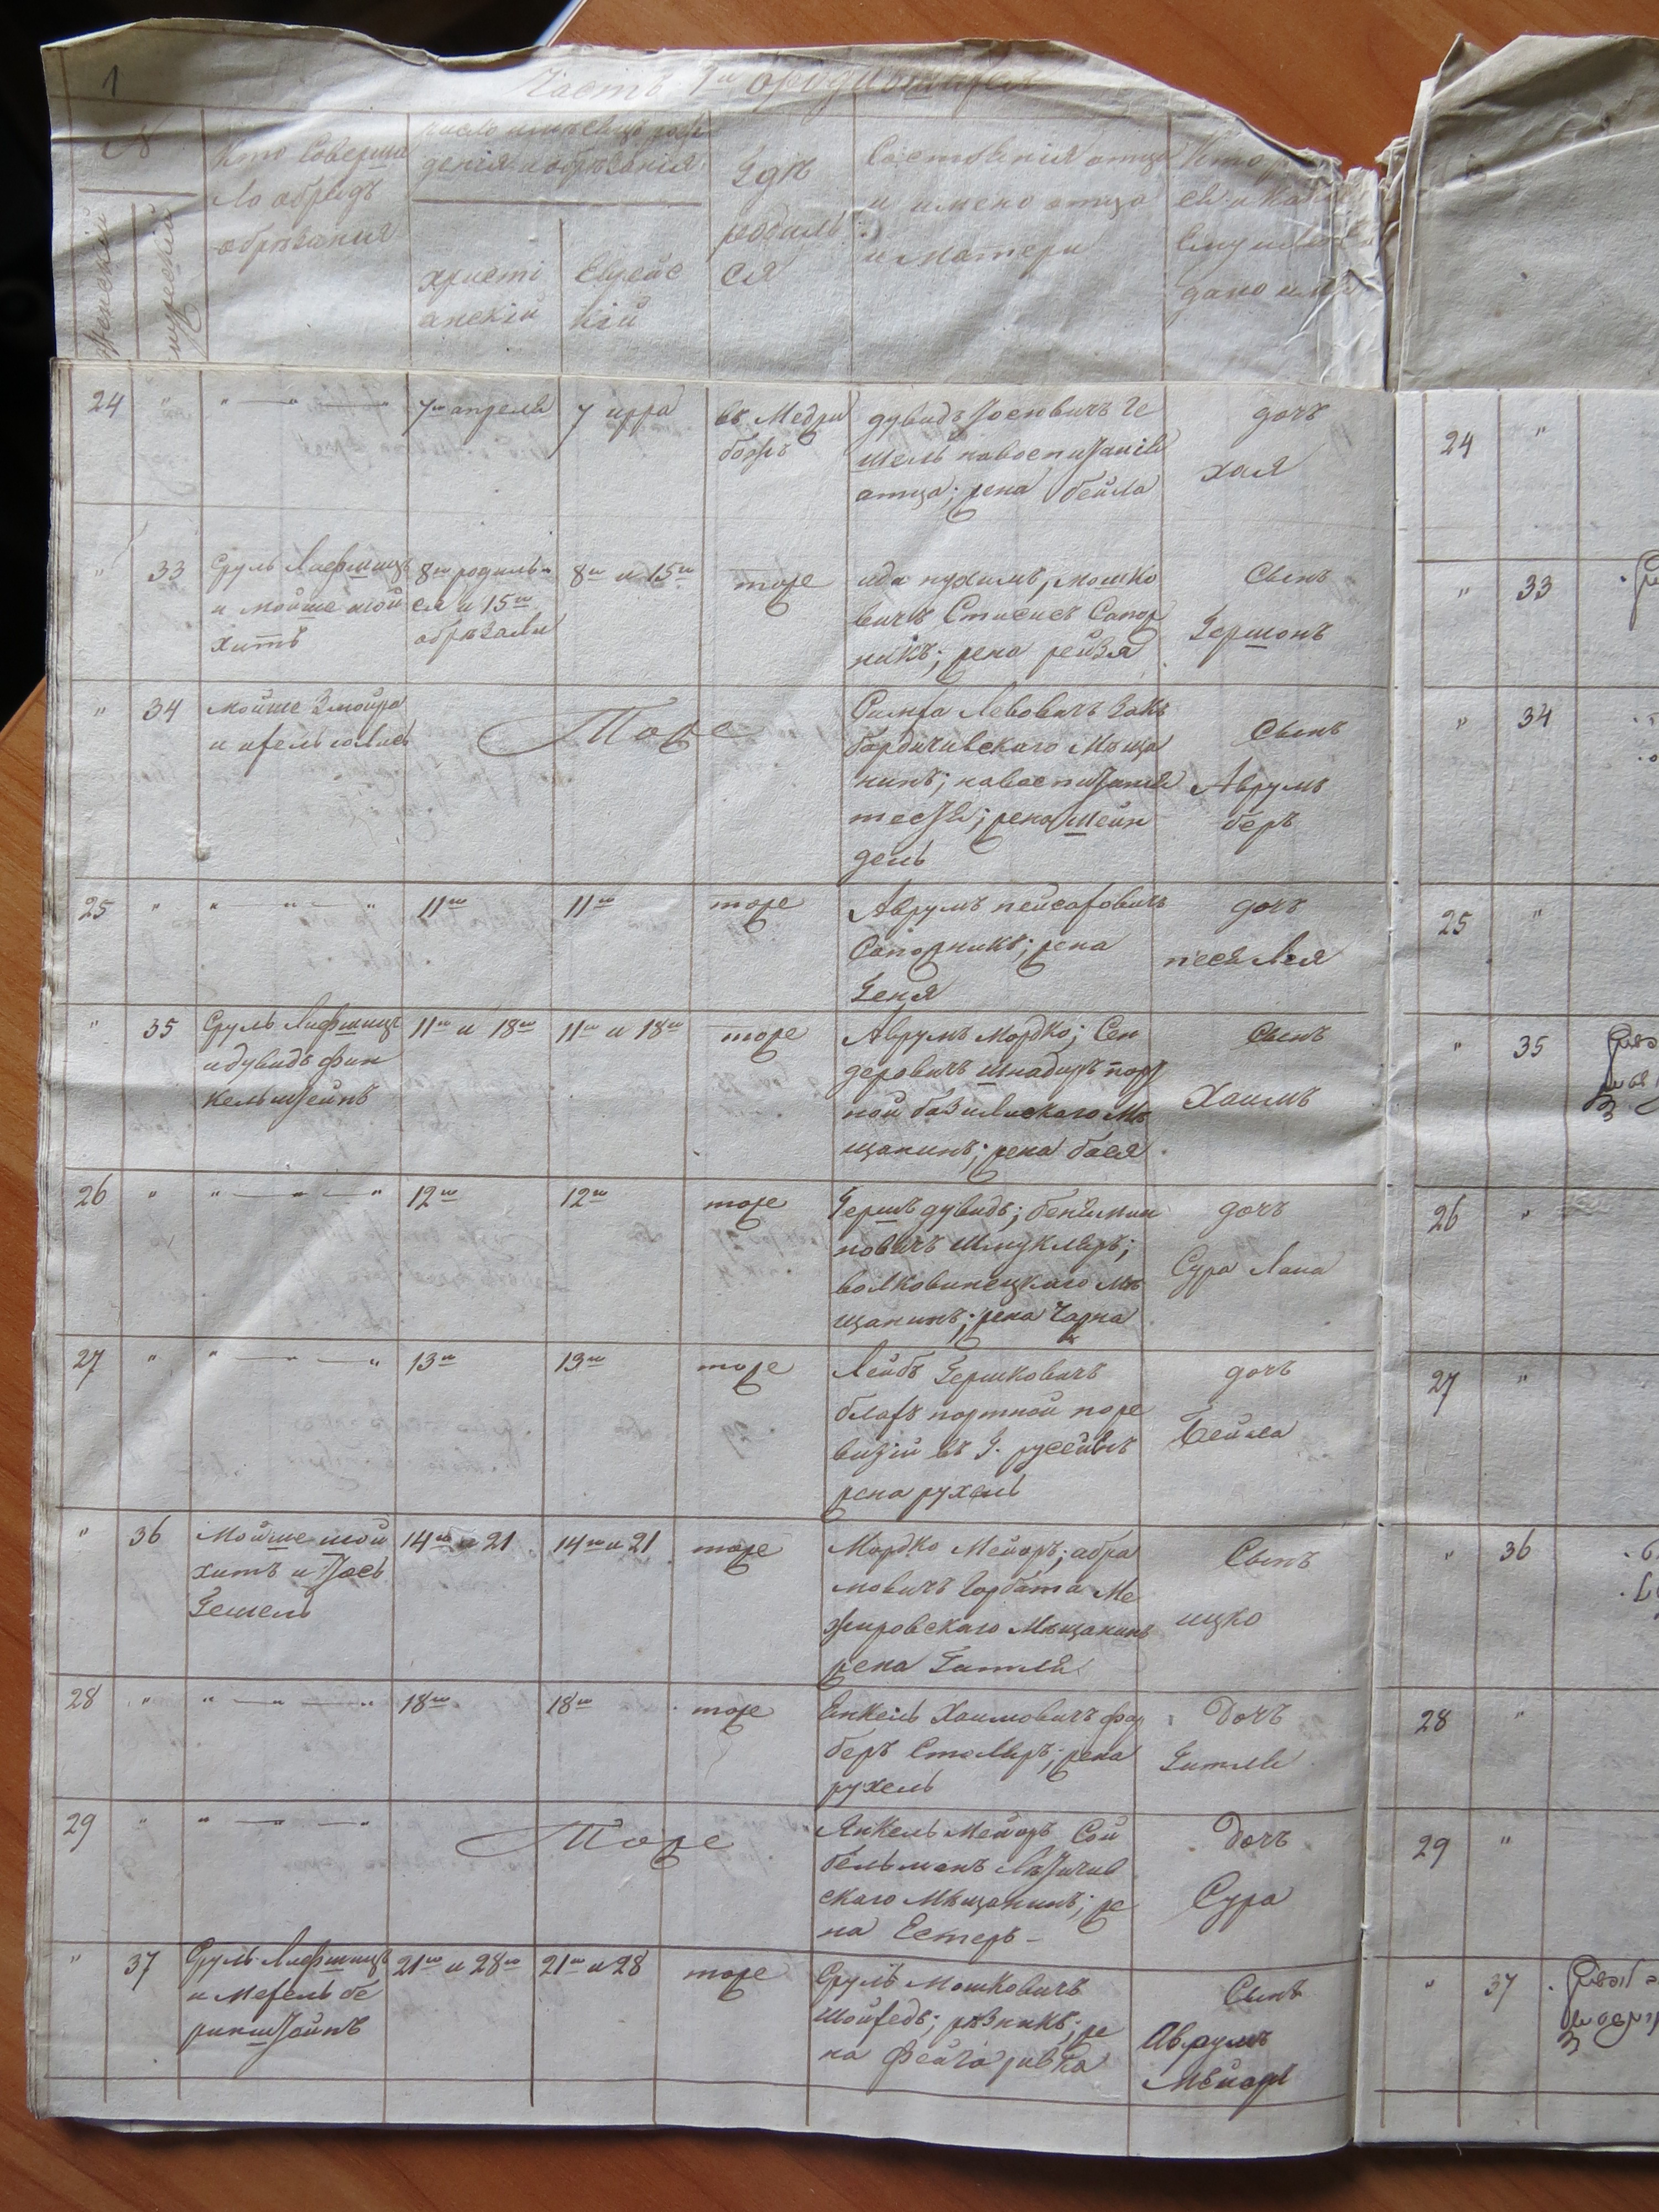 1
Часть 1я о родившихся
№
Женский
мужеский
Кто Соверши
ло обрядъ
обрезания
число и месяцъ рож
дения и обрезания
христі
анскій
Еврейс
кій
Где
родиль
ся
Состояния отца
и имено отца
и матери
дано имя
24 " " — " — " 7го апреля 7 ирра въ Меджи
божъ
дувидъ Iосиовичъ Ге
шель навоспитании
отца; жена бейла
дочъ
хая
" 33 Сруль Лифшицъ
и мойше шой
хитъ
8го родиль
ся и 15го
обрезали
8го и 15го
тоже
нухимъ, мошко
вичъ Стисисъ Сапож
никъ; жена рейзя
Сынъ
Гершонъ
" 34 мойше
Тоже
Левовичъ Закъ
бердичивскаго Меща
нинъ; навоспитании
тестя; жена шейн
дель
Сынъ
Аврумъ
беръ
25 " " — " — " 11го 11го тоже
Аврумъ пейсаховичъ
Сапожникъ; жена
Геня
дочъ
песя Лея
" 35 Сруль Лифшицъ
и дувидъ фин
кельштейнъ
11го и 18го 11го и 18го тоже
Аврумъ Мордко; Сен
деровичъ шнайдеръ порт
ной базилискаго Ме
щанинъ; жена бася
Сынъ
Хаимъ
26 " " — " — " 12го 12го тоже
Гершъ дувидъ; бениямин
новичъ Шмуклеръ;
волковинецкаго ме
щанинъ; жена Чарна
дочъ
Сура Лана
27 " " — " — " 13го 13го тоже
Лейбъ Гершковичъ
блахъ портной поре
визіи въ
жена рухель
дочъ
бейла
" 36 Мойше шой
хитъ и Iось
Гешель
14го и 21 14го и 21 тоже
Мордко Мейоръ; абра
мовичъ Горбата Ме
жировскаго Мещанинъ
жена Гитля
Сынъ
ицко
28 " " — " — " 18го 18го тоже
Енкель Хаимовичъ фар
беръ Столяръ; жена
рухель
Дочъ
Гитля
29 " " — " — "
Тоже
Янкель Мейоръ Сой
бельманъ Летичив
скаго Мещанинъ; же
на Естеръ
Дочъ
Сура
" 37 Сруль Лифшицъ
и Мехель бе
ринштейнъ
21го и 28го 21го и 28 тоже
Сруль Мошковичъ
Шойхедъ; резникъ; же
на Фейга ривка
Сынъ
Аврумъ
Мейоръ
24 "
" 33
" 34
25 "
" 35
26 "
27 "
" 36
28 "
29 "
" 37